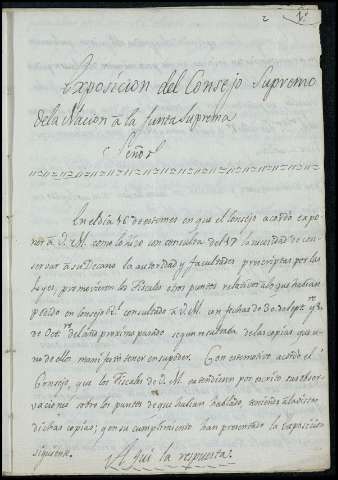 2 1.
Exposicion del Consejo Supremo
de la Nacion â la Junta Suprema
Señor
En el dia 16 de este mes en que el Consejo acordó expo
ner â V. M. como lo hizo con consulta del 17 la necesidad de con
servar â su Decano la autoridad y facultades prescriptas por las
Leyes, promovieron los Fiscales otros puntos relativos a lo que habian
pedido en Consejo consultado â V. M. con fechas de 3 de Sept.re y 8
de Oct.re del año proximo pasado segun resultaba de las copias que u
no de ellos manifestó tener en su poder. Con este motivo acordó el
Consejo, que los Fiscales de V. M. extendiesen por escrito sus obser
vaciones sobre los puntos de que habian hablado, teniendo â la vista
dichas copias; y en su cumplimiento han presentado la exposicion
siguiente.
Aqui la respuesta.